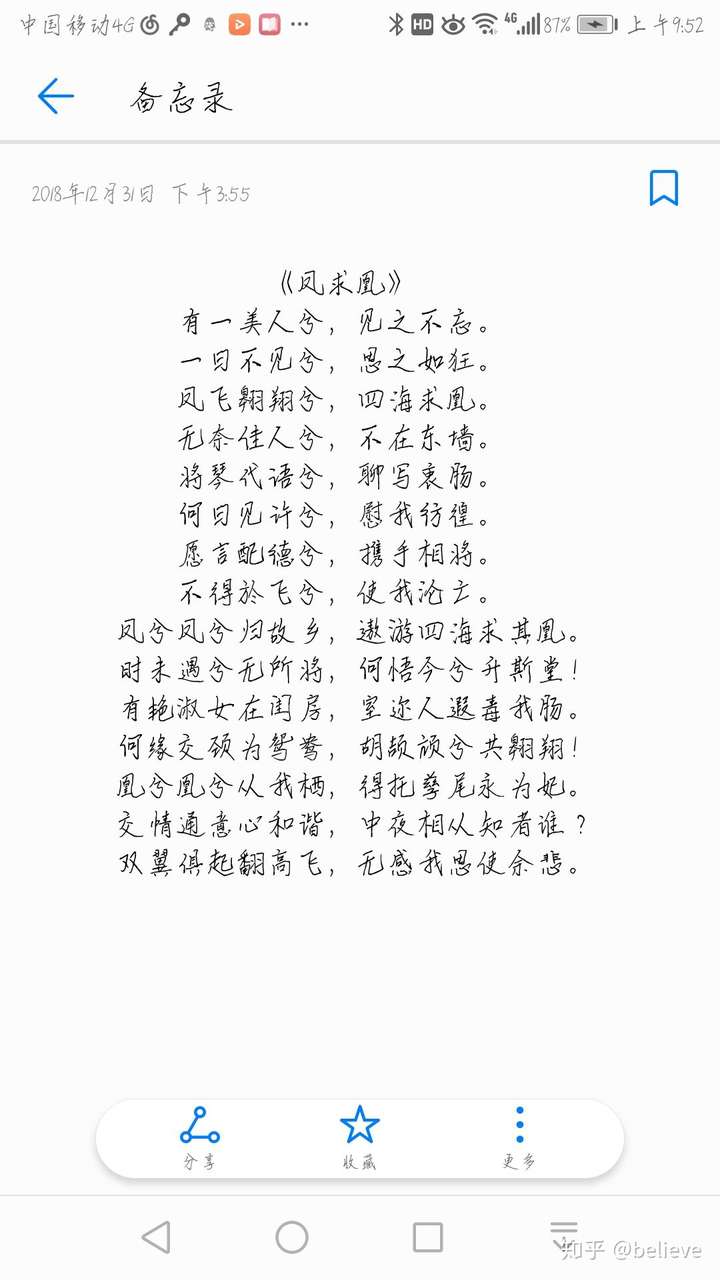 中国移动4G HD 4G 87% 上午9:52
备忘录
2018年12月31日 下午3:55
《凤求凰》
有一美人兮，见之不忘。
一日不见兮，思之如狂。
凤飞翱翔兮，四海求凰。
无奈佳人兮，不在东墙。
将琴代语兮，聊写衷肠。
何日见许兮，慰我彷徨。
愿言配德兮，携手相将。
不得於飞兮，使我沦亡。
凤兮凤兮归故乡，遨游四海求其凰。
时未遇兮无所将，何悟今兮升斯堂！
有艳淑女在闺房，室迩人遐毒我肠。
何缘交颈为鸳鸯，胡颉颃兮共翱翔！
凰兮凰兮从我栖，得托孳尾永为妃。
交情通意心和谐，中夜相从知者谁？
双翼俱起翻高飞，无感我思使余悲。
分享 收藏 更多
知乎 @believe